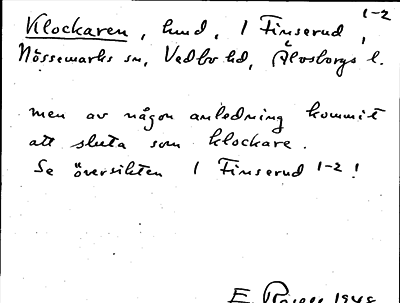 1-2
Klockaren, hmd, 1 Finserud,
Nössemarks sn, Vedbo hd, Älvsborgs l.
men av någon anledning kommit
att sluta som klockare.
Se översikten 1 Finserud 1-2!
E. 1948